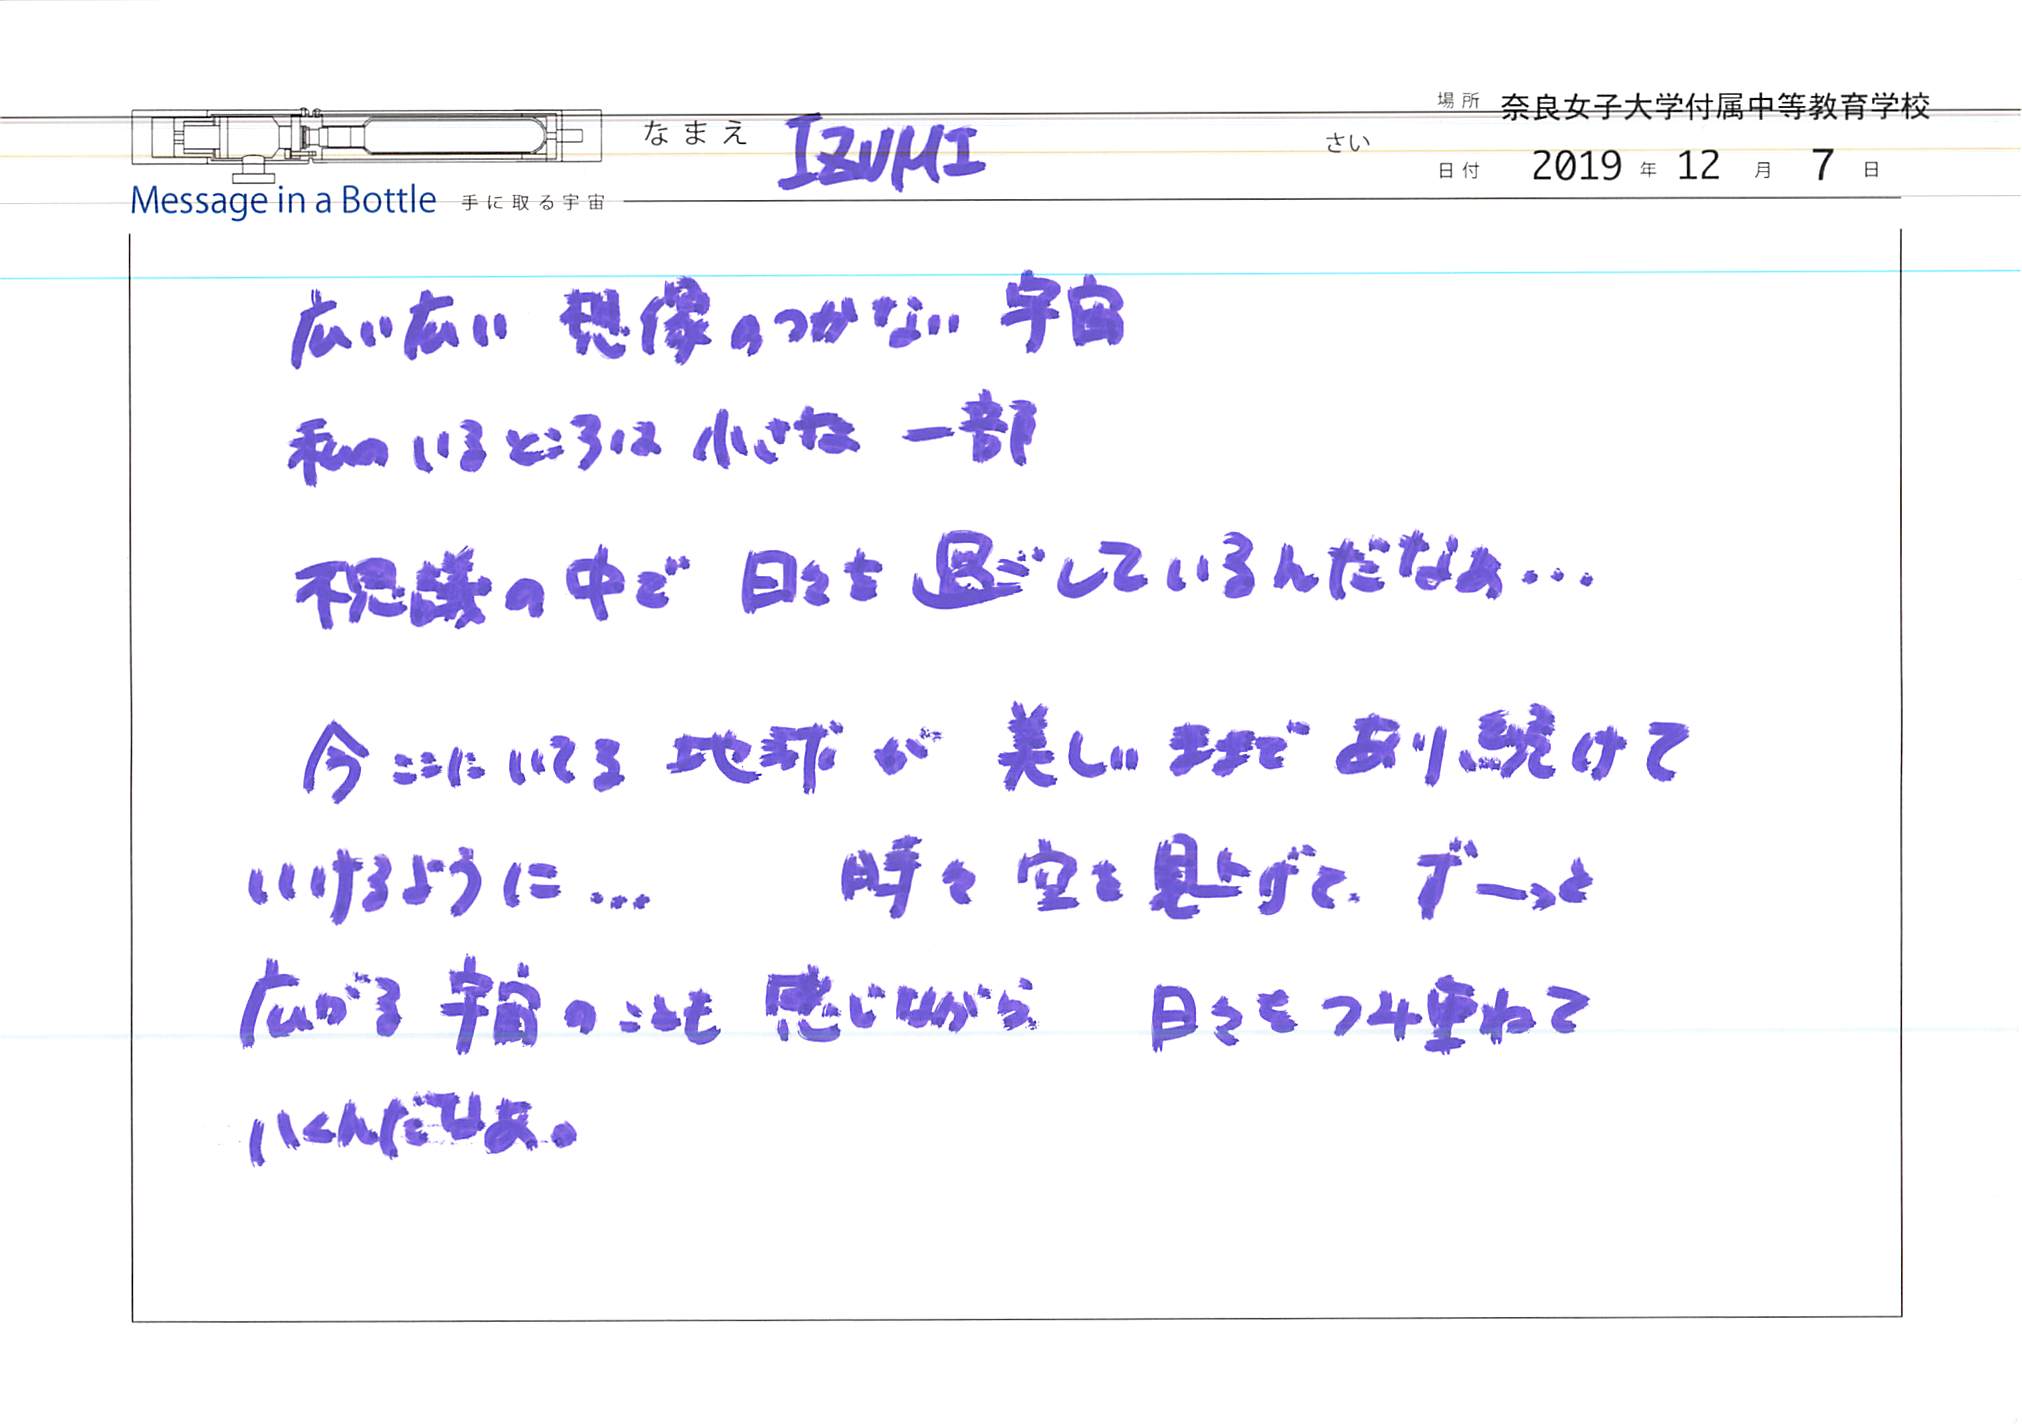 場所 奈良女子大学付属中等教育学校
なまえ IZUMI さい
日付 2019 年 12 月 7 日
Message in a Bottle 手に取る宇宙
広い広い 想像のつかない 宇宙
私のいるところは 小さな 一部
不思議の中で 日々を 過ごしているんだなぁ...
今ここにいてる 地球が 美しいままで あり続けて
いけるように... 時々 空を見上げて、ずーっと
広がる 宇宙のことも 感じながら、 日々をつみ重ねて
いくんだなぁ。